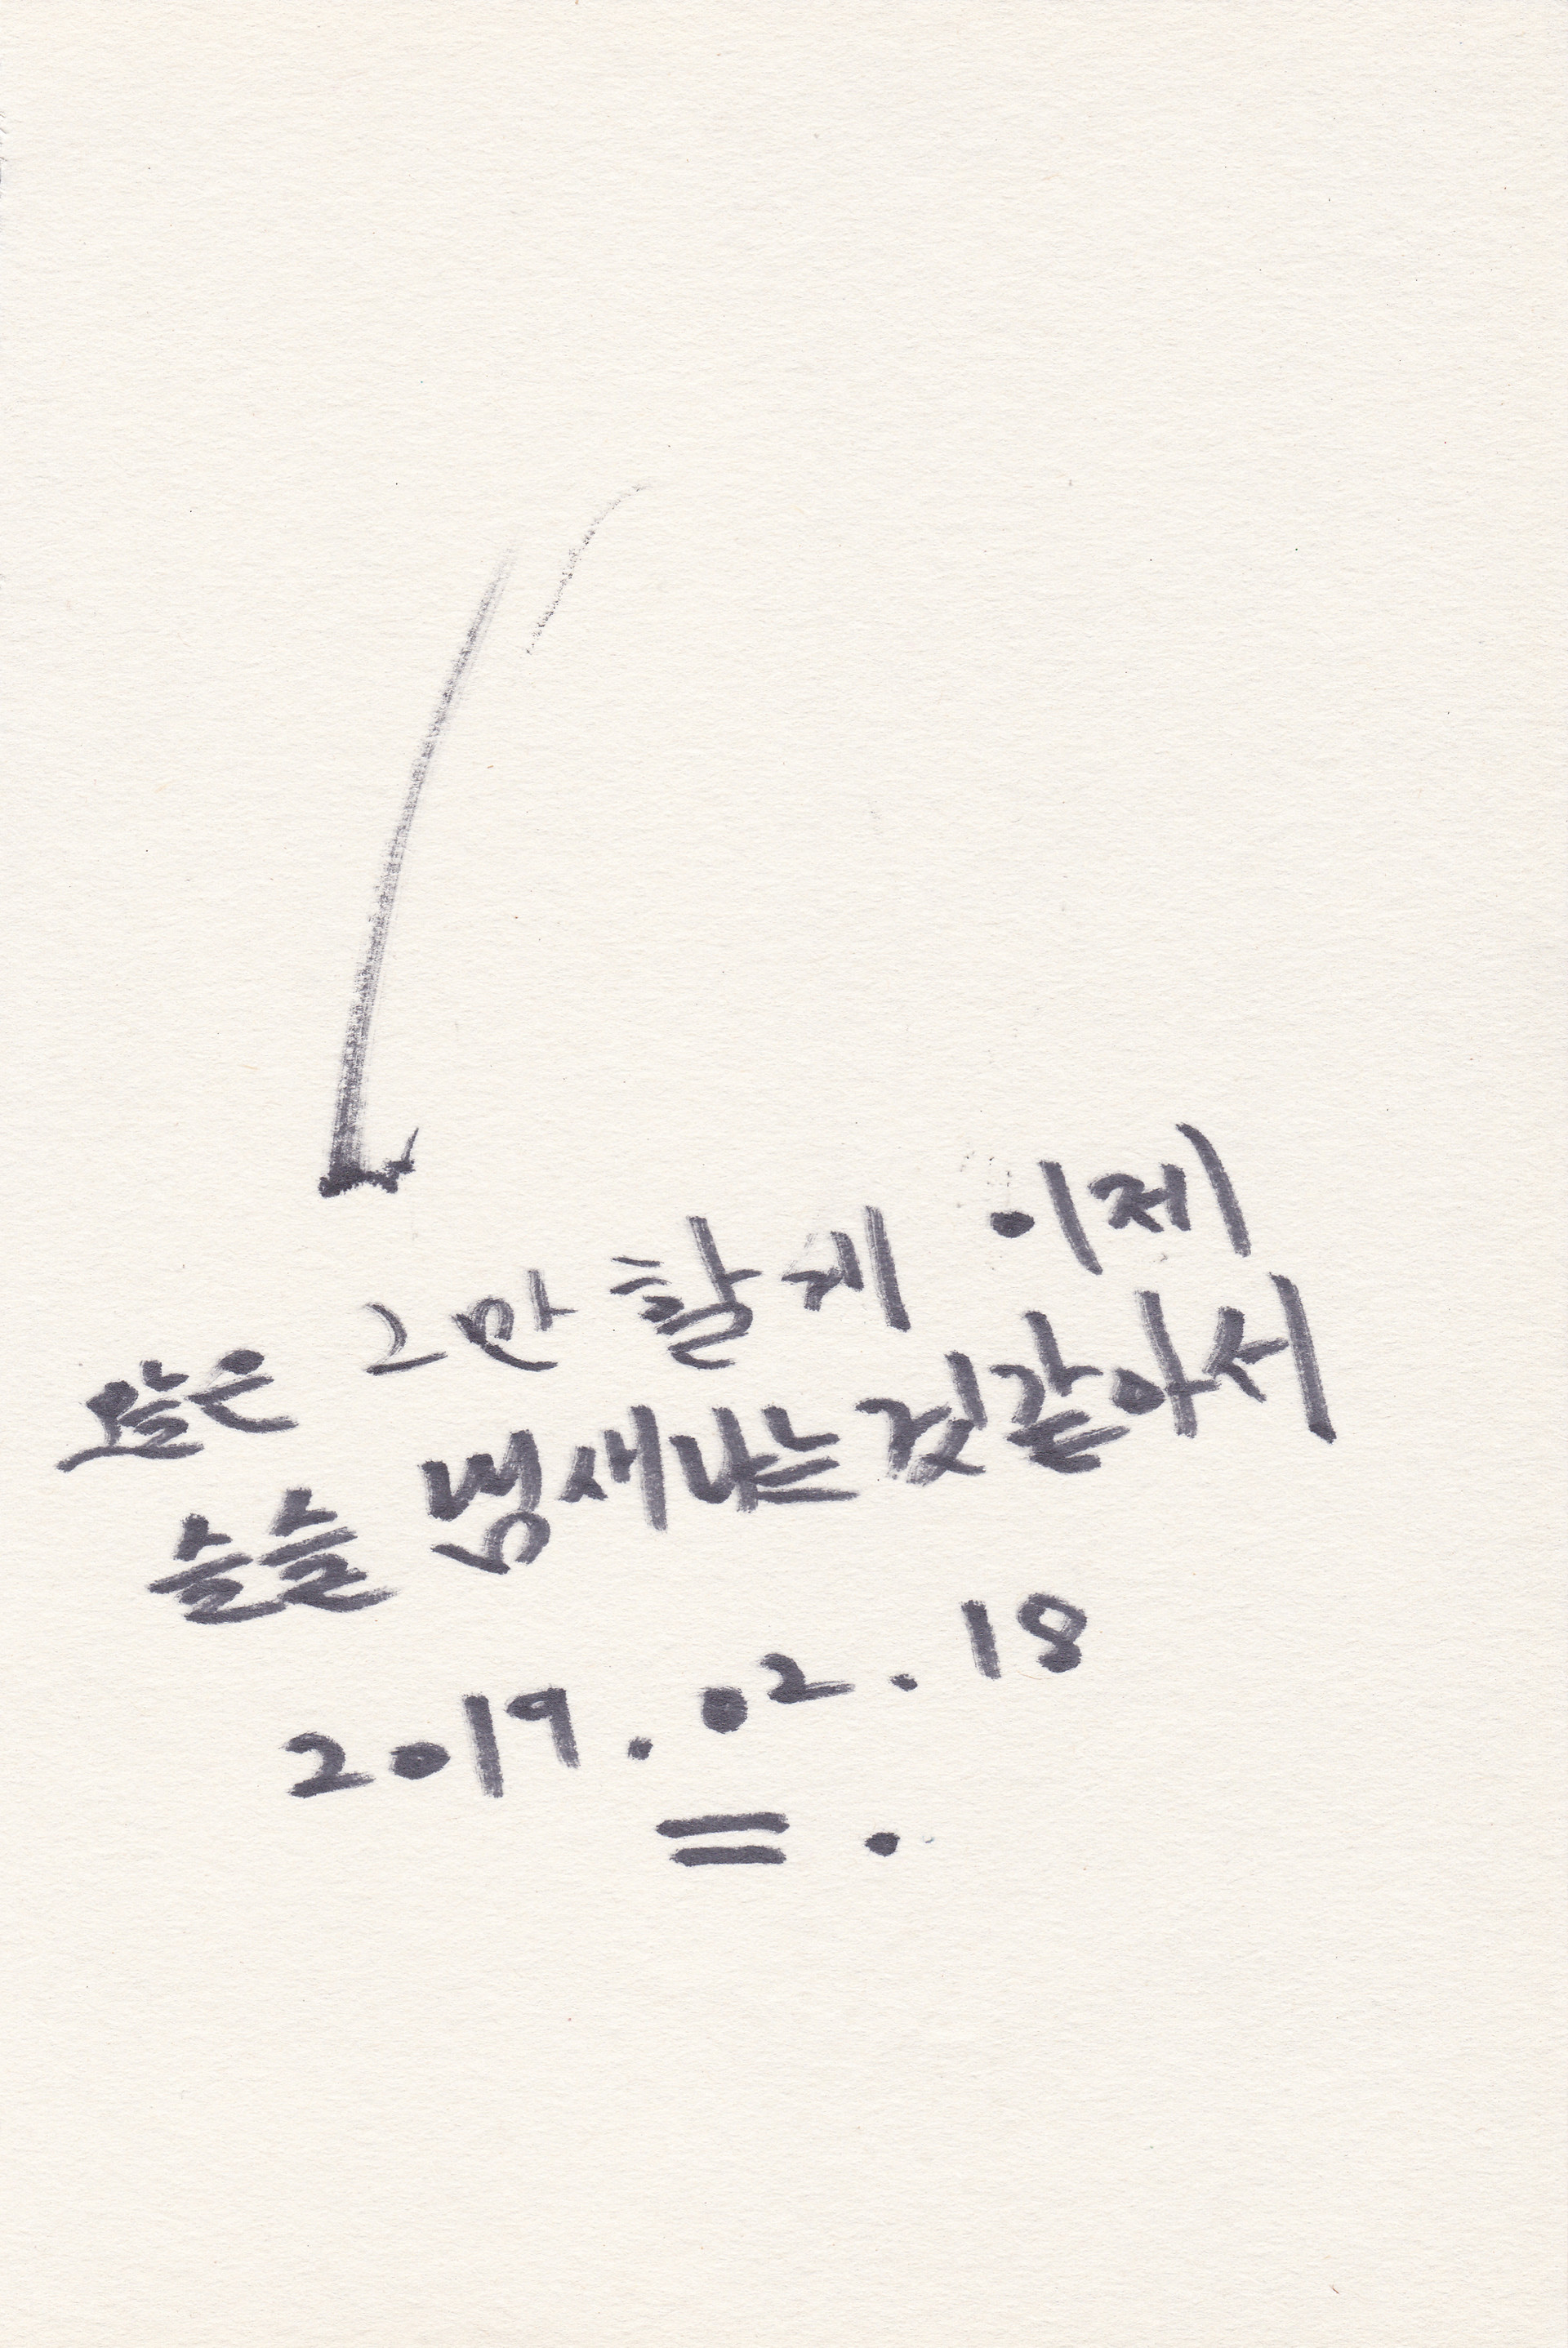 오늘은 그만 할게 이제
슬슬 냄새나는것같아서
2019.02.18